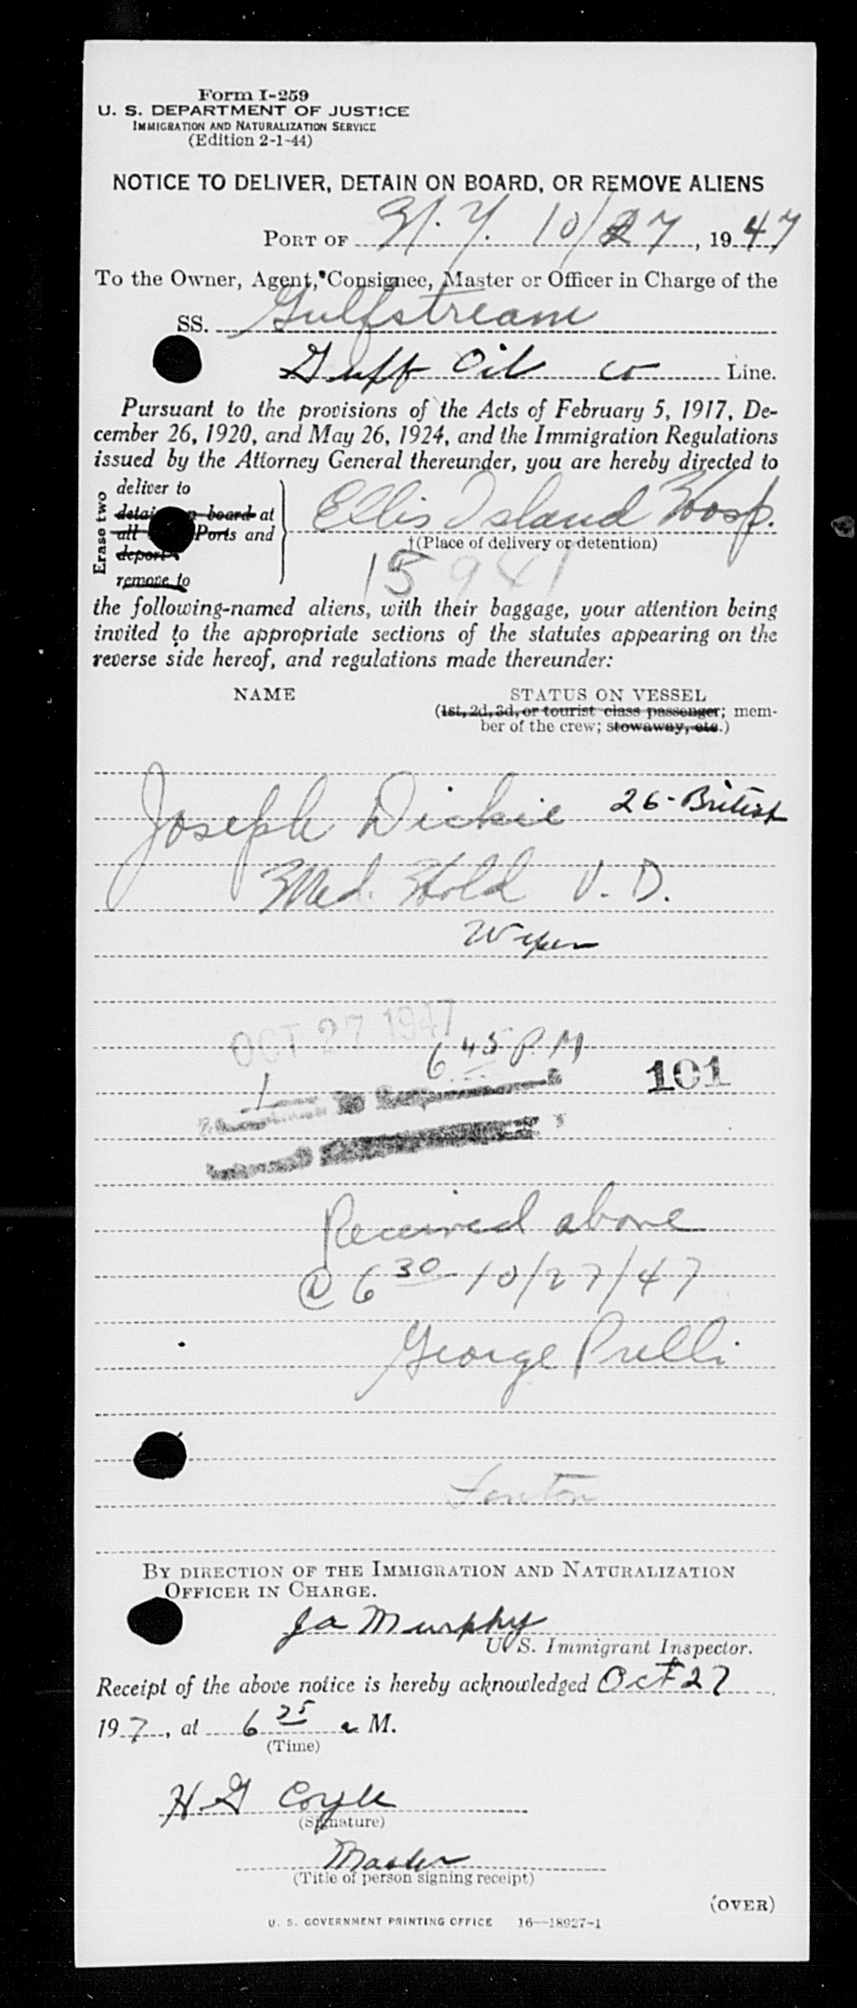 Form I-259
U. S. DEPARTMENT OF JUSTICE
IMMIGRATION AND NATURALIZATION SERVICE
(Edition 2-1-44)
NOTICE TO DELIVER, DETAIN ON BOARD, OR REMOVE ALIENS
PORT OF N. Y. 10/27, 1947
To the Owner, Agent, Consignee, Master or Officer in Charge of the
SS. Gulfstream
Gulf Oil Co Line.
Pursuant to the provisions of the Acts of February 5, 1917, De-
cember 26, 1920, and May 26, 1924, and the Immigration Regulations
issued by the Attorney General thereunder, you are hereby directed to
Erase two
deliver to
board at
all Ports and
deport
remove to
Ellis Island Hosp.
†(Place of delivery or detention)
15941
the following-named aliens, with their baggage, your attention being
invited to the appropriate sections of the statutes appearing on the
reverse side hereof, and regulations made thereunder:
NAME STATUS ON VESSEL
(1st, 2d, 3d, or tourist class passenger; mem-
ber of the crew; stowaway, etc.)
Joseph Dickie 26-British
Med. Hold V. D.
Wiper
OCT 27 1947
6 45 P. M
101
Received above
@ 6 30 10/27/47
George Prelli
BY DIRECTION OF THE IMMIGRATION AND NATURALIZATION
OFFICER IN CHARGE.
Ja Murphy
U. S. Immigrant Inspector.
Receipt of the above notice is hereby acknowledged Oct 27
197, at 6 25 M.
(Time)
H G Coyle
(Signature)
Master
(Title of person signing receipt)
(OVER)
U. S. GOVERNMENT PRINTING OFFICE 16—18927-1